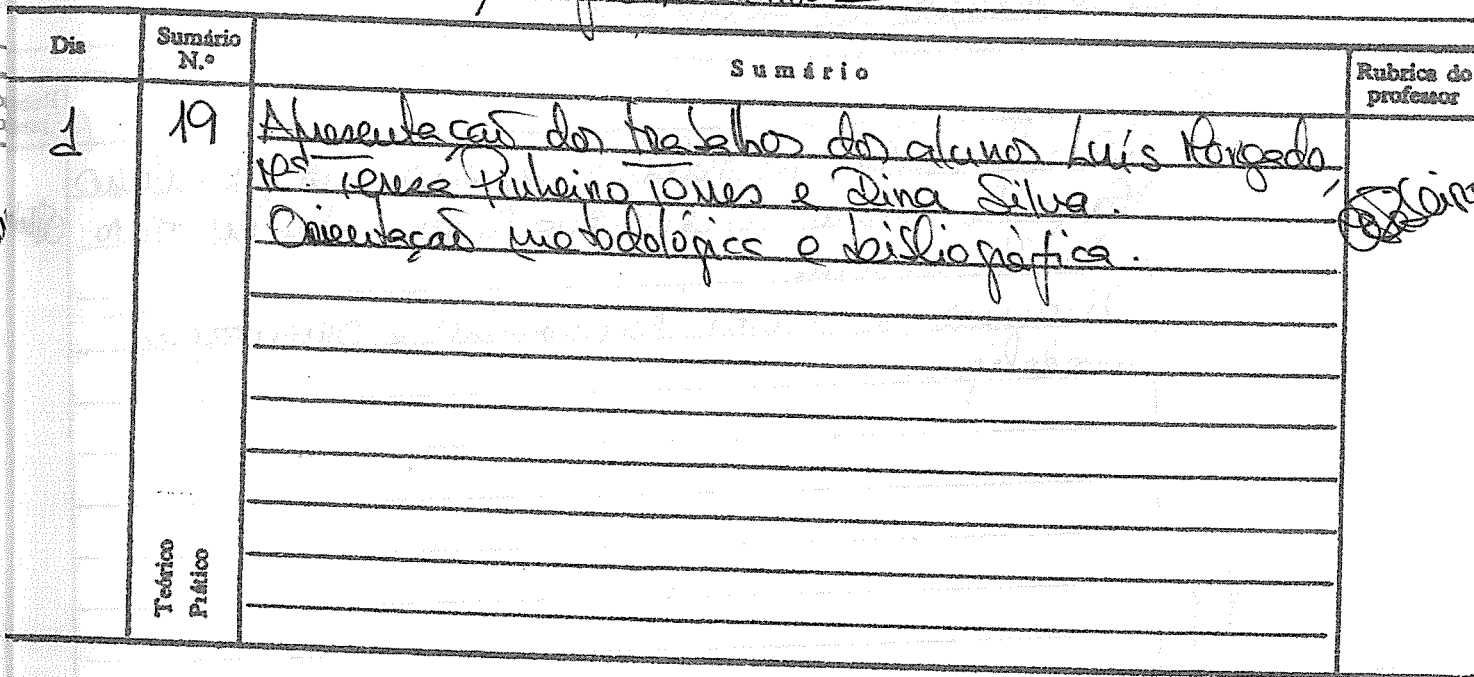 Dia
Sumário N.º
Sumário
Rubrica do professor
1
19
Apresentação dos trabalhos dos alunos Luís Morgado,
Mª. Teresa Pinheiro Torres e Dina Silva.
Orientação metodológica e bibliográfica.
Teórico
Prático